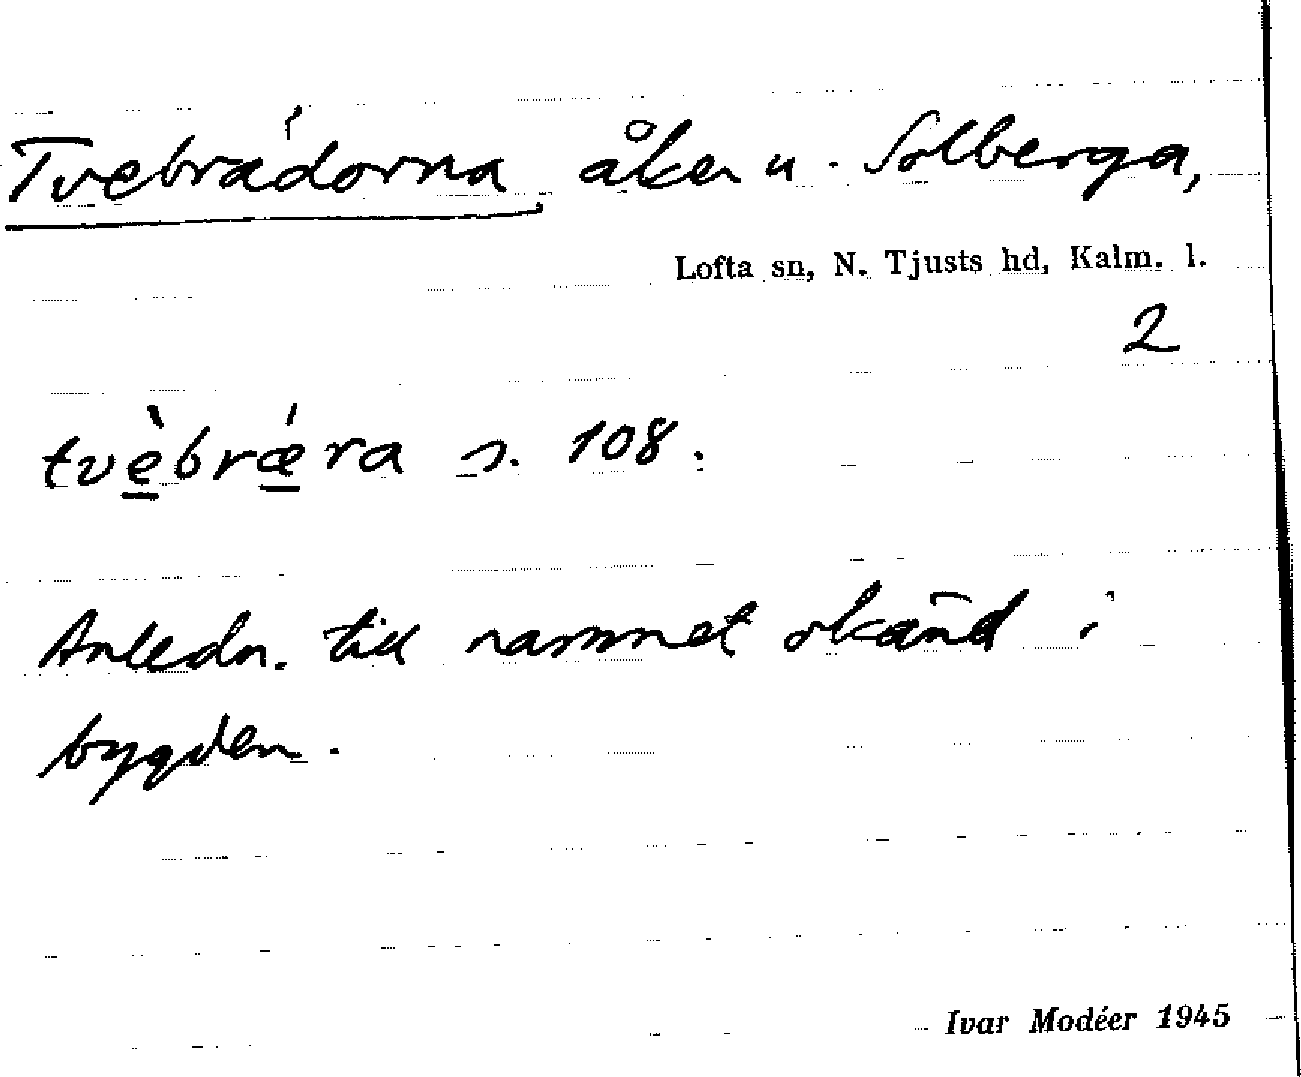 Tvebrádorna, åker u. Solberga,
Lofta sn, N. Tjusts hd, Kalm. l.
2
tvèbrǽra s. 108.
Anledn. till namnet okänd i
bygden.
Ivar Modéer 1945